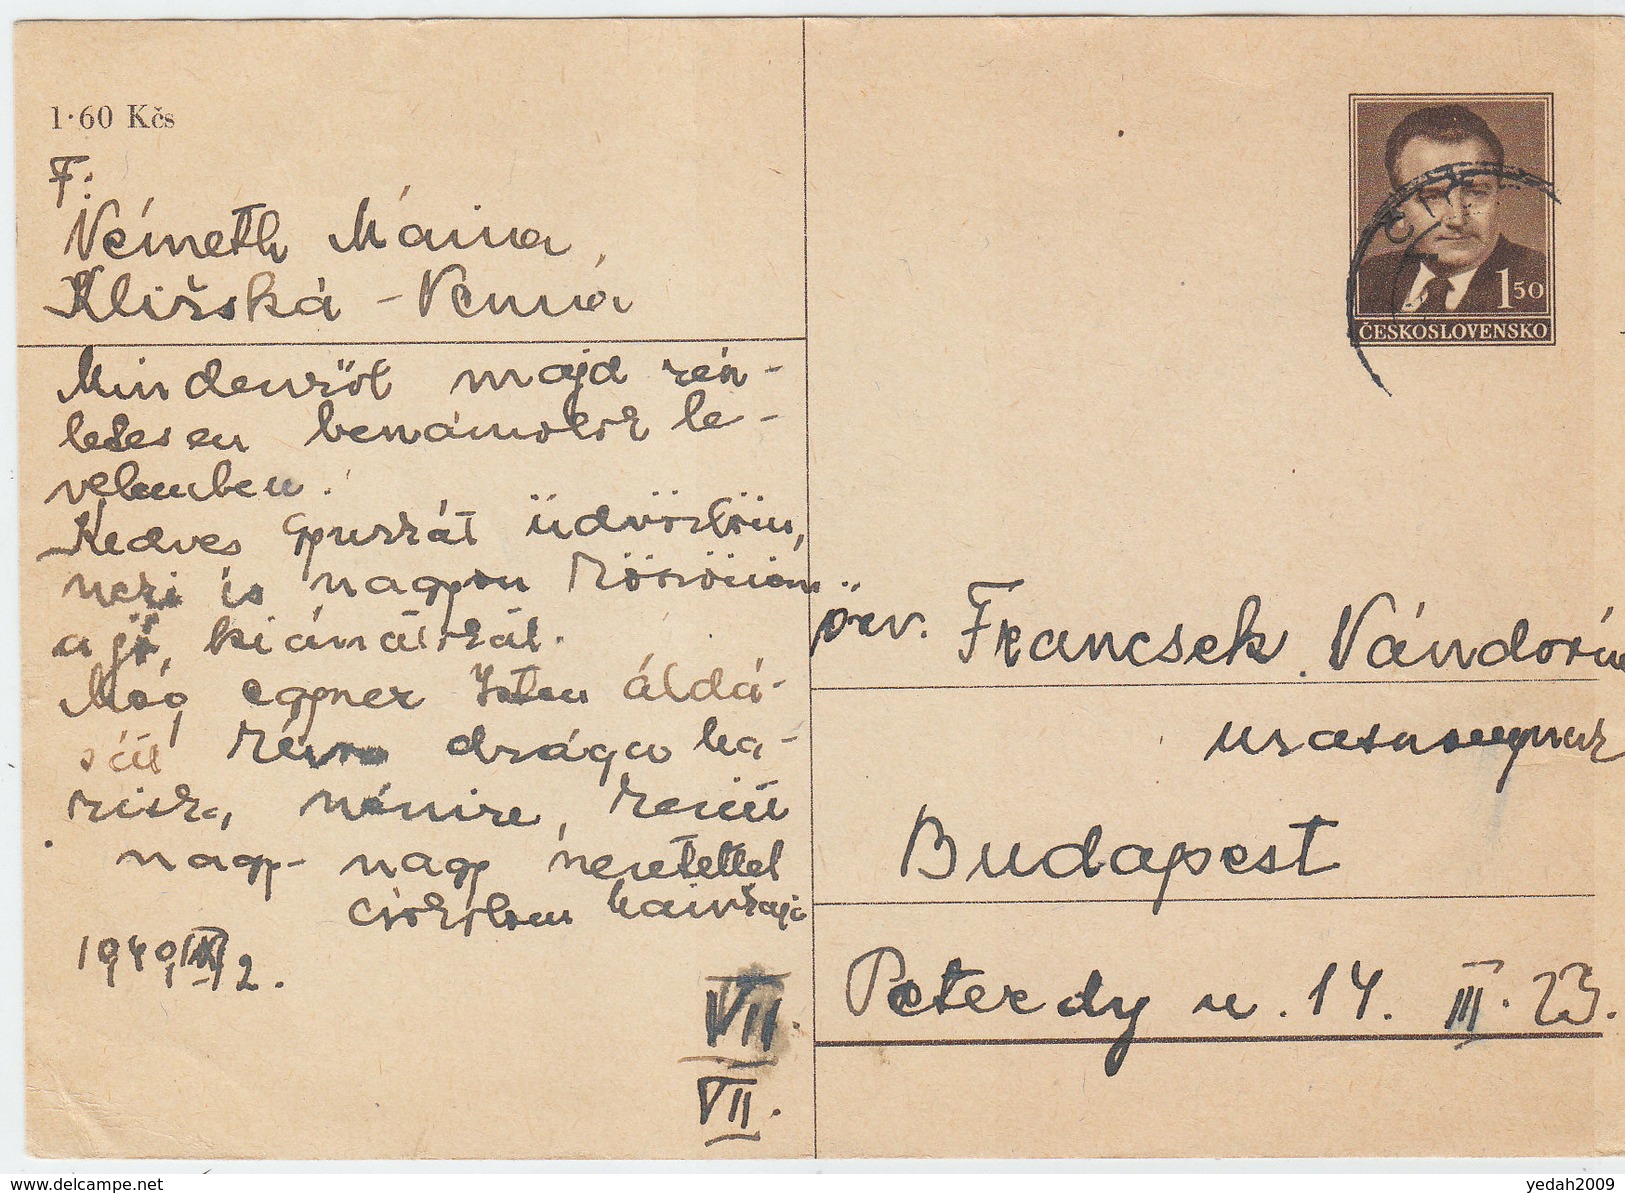 1·60 Kčs
F:
Németh Mária
Kližská - Nemá
Mindenről majd rész-
letesen beszámolok le-
velemben.
Kedves Gyuszkát üdvözlöm,
neki is nagyon köszönöm
a jó kívánátokat.
Még egyszer Isten áldá-
sát kérve drága ha-
nagy- nagy szeretettel
csókolom
VII.
VII.
1 50
ČESKOSLOVENSKO
özv. Francsek Nándorné
úrasszonynak
Budapest
Peterdy u. 14. III. 23.
www.delcampe.net
yedah2009